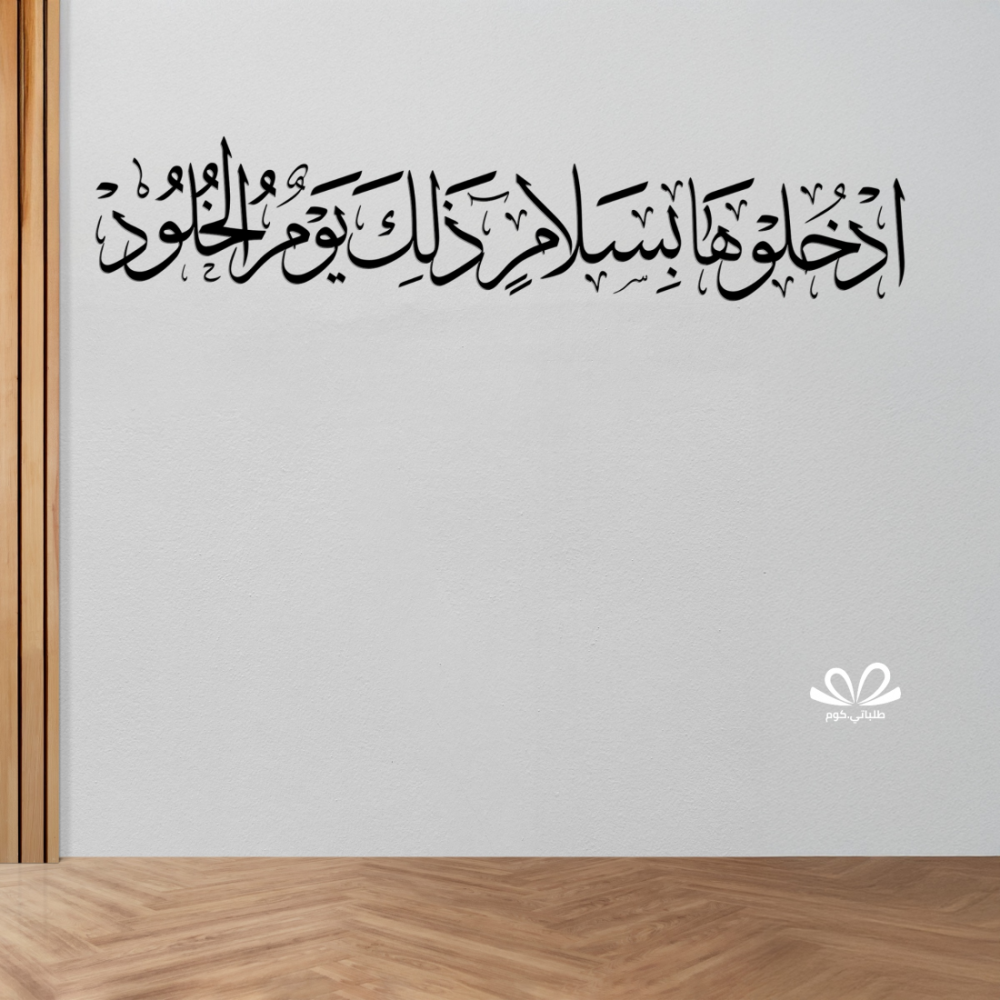 ادْخُلُوْهَا بِسَلَامٍ ذَلِكَ يَوْمُ الْخُلُودْ
طلباتي.كوم